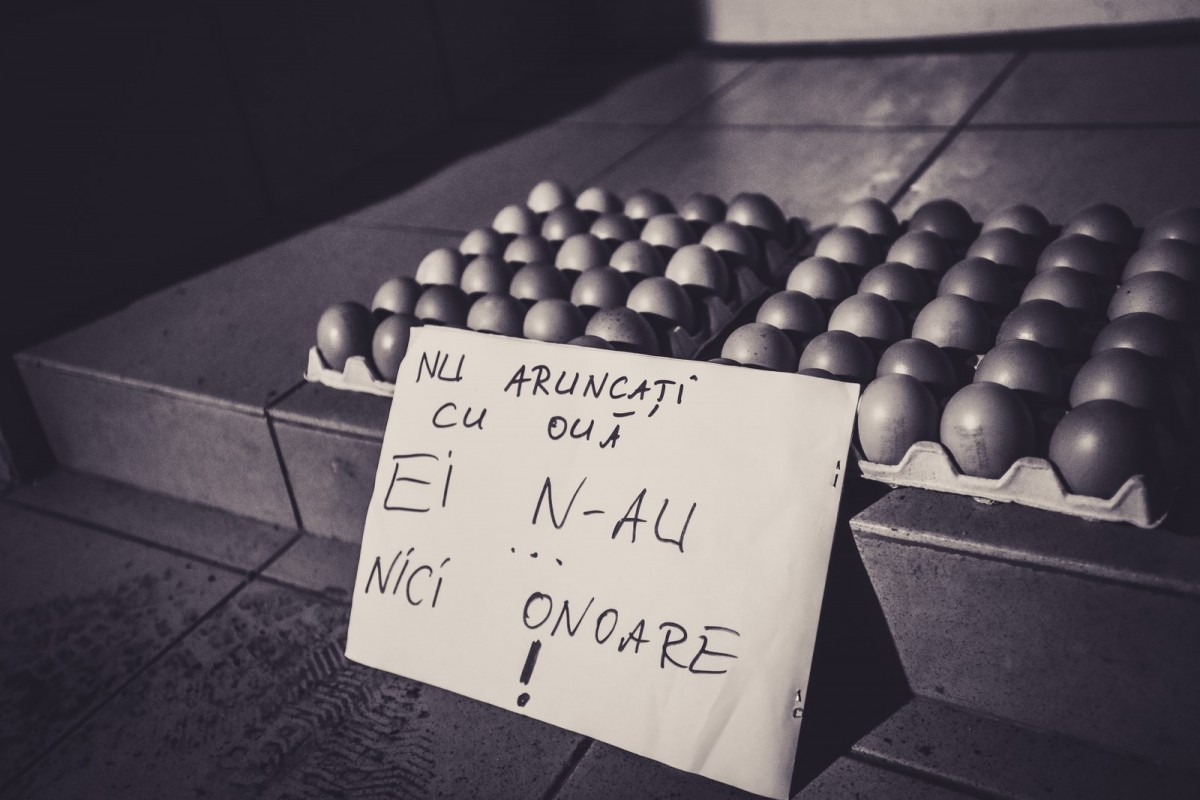 NU ARUNCAȚi
CU OUĂ
Ei N-AU
...
NiCi ONOARE
!